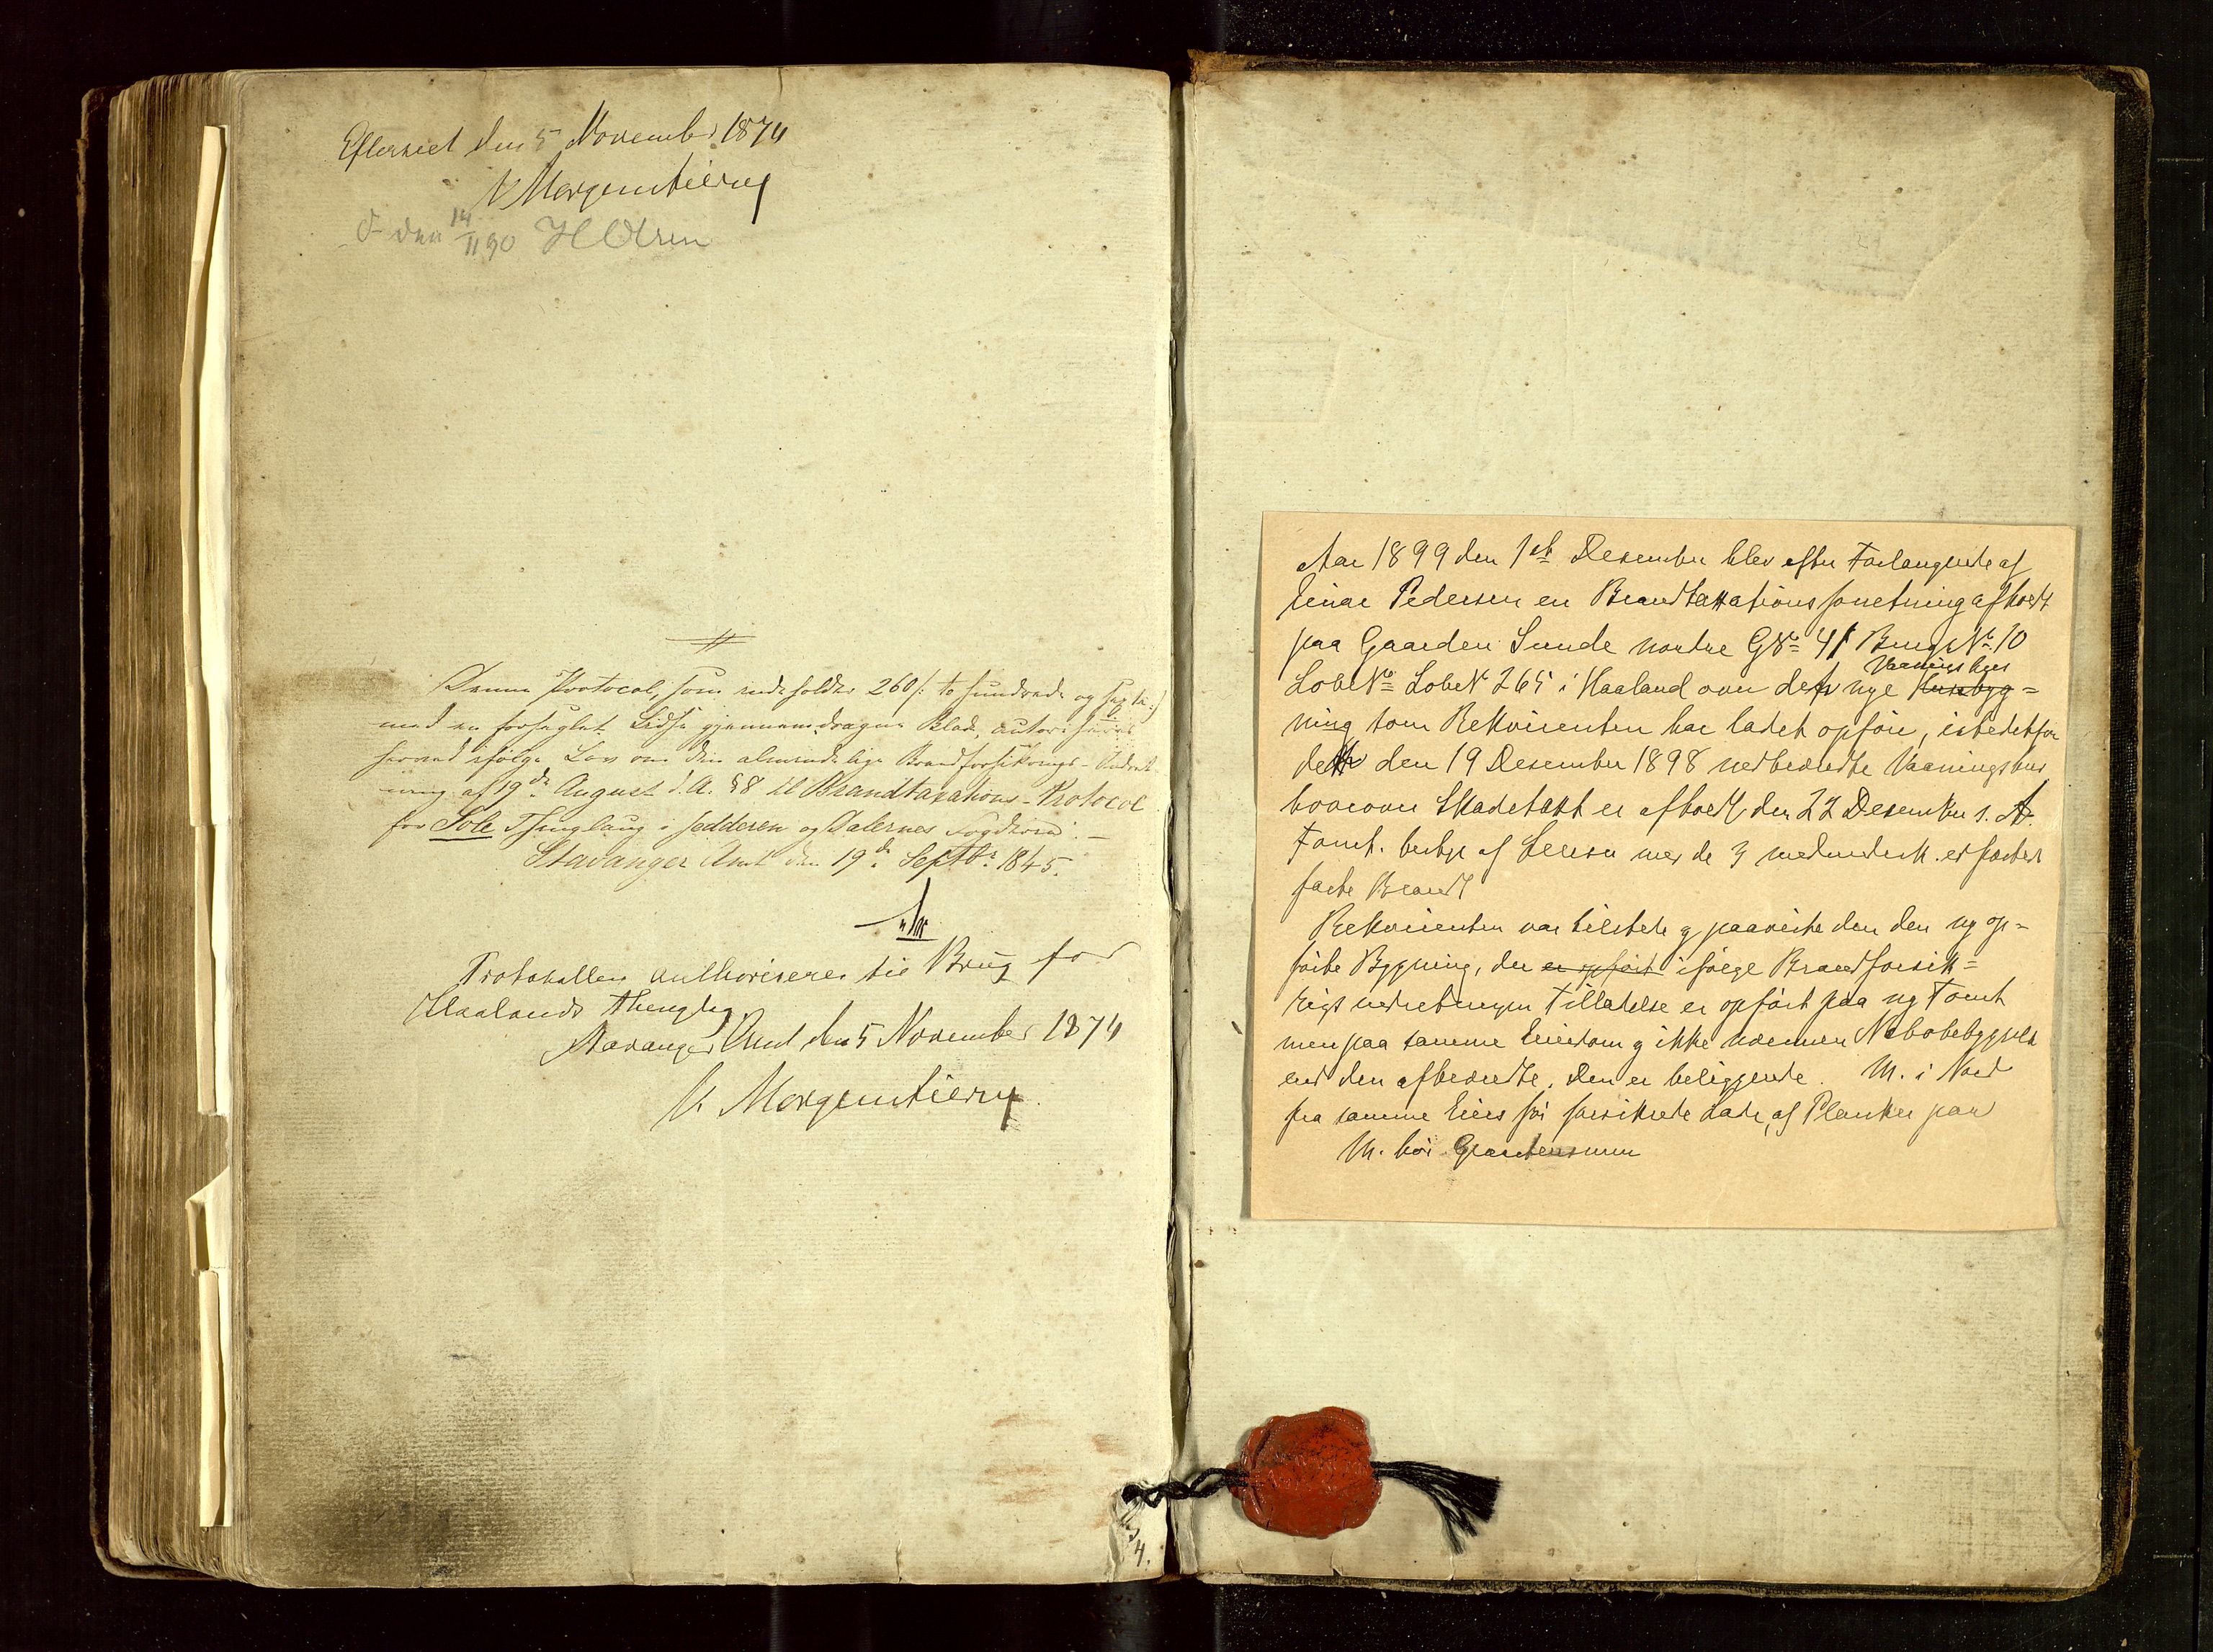 Efterseet den 5 November 1874
V Morgenstierne
den 14/11 90 H Olsen
Denne Protocol, som indeholder 260 /: to hundrede og sexti :/
med en forseglet Lidse gjennemdragne Blade, autoriseres
herved ifølge Lov om den almindelige Brandforsikrings-Indret-
ning af 19de August d. A. §8 til Brandtaxations-Protocol
for Sole Thinglaug i Jedderen og Dalernes Fogderie. -
Stavanger Amt den 19de Septbr 1845.
Protokollen authoriseres til Brug for
Haalands Thinglag
Stavanger Amt den 5 November 1874
V. Morgenstierne
Aar 1899 den 1ste Desember blev efter Forlangende af
Einar Pedersen en Brandtaxationsforretning afholdt
paa Gaarden Sunde nordre GNo 41 Brugs No 10
LobeNo LobeN 265 i Haaland over den nye Vaaningsbyg Husebyg=
ning som Rekvirenten har ladet opføre, istedetfor
det den 19 Desember 1898 nedbrændte Vaaningshus
hvorover Skadetaxt er afholdt den 22 Desember s. A.
Forret. bestyr af Lensm med de 3 medundersk.
faste Brandt
Rekvirenten var tilstede g paaviste den den ny op-
førte Bygning, der er opført ifølge Brandforsik=
rigs indretningen Tilladelse er opført paa ny Tomt
men paa samme Eiendom g ikke nærmere Nabobebyggelse
end den afbrændte. Den er beliggende M. i Nord
fra samme Eiers før forsikrede Lade, af Planker paa
M. høi Graastensmur
4.